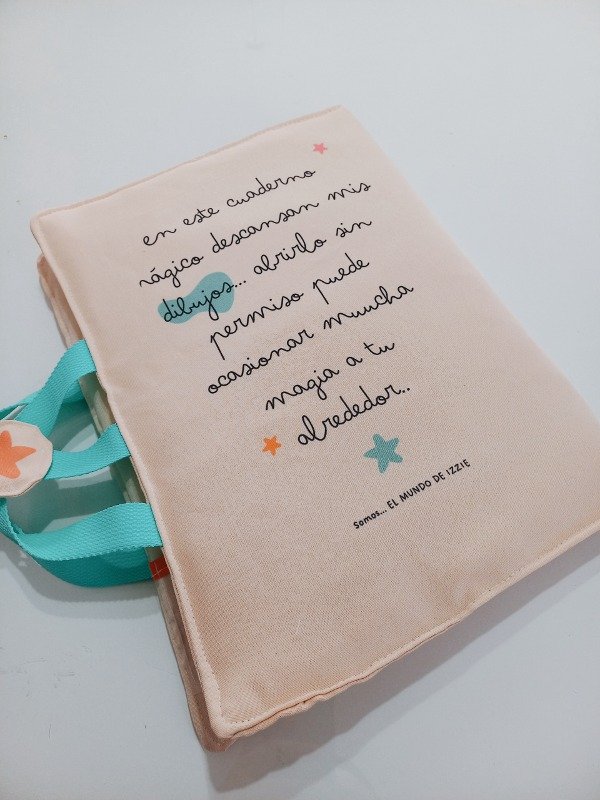 en este cuaderno
mágico descansan mis
dibujos... abrirlo sin
permiso puede
ocasionar muucha
magia a tu
alrededor..
Somos... EL MUNDO DE IZZIE